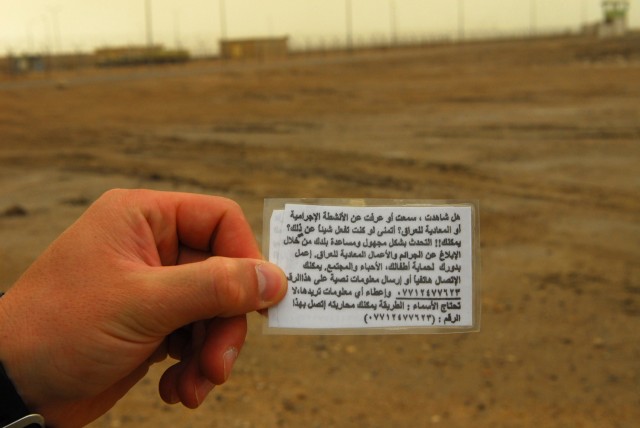 هل شاهدت ، سمعت أو عرفت عن الأنشطة الإجرامية
أو المعادية للعراق؟ أتمنى لو كنت تفعل شيئا عن ذلك؟
يمكنك!! التحدث بشكل مجهول ومساعدة بلدك من خلال
الإبلاغ عن الجرائم والأعمال المعادية للعراق. إعمل
بدورك لحماية أطفالك، الأحباء والمجتمع. يمكنك
الإتصال هاتفياً أو إرسال معلومات نصية على هذاالرقم
٠٧٧١٢٤٧٧٦٢٣ وإعطاء أي معلومات تريدها،لا
تحتاج الأسماء : الطريقة يمكنك محاربته إتصل بهذا
الرقم : (٠٧٧١٢٤٧٧٦٢٣)